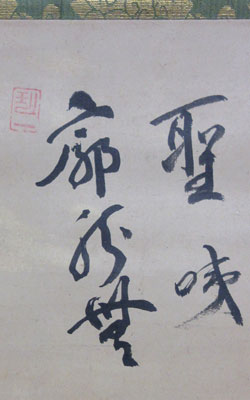 廓然無
聖咦